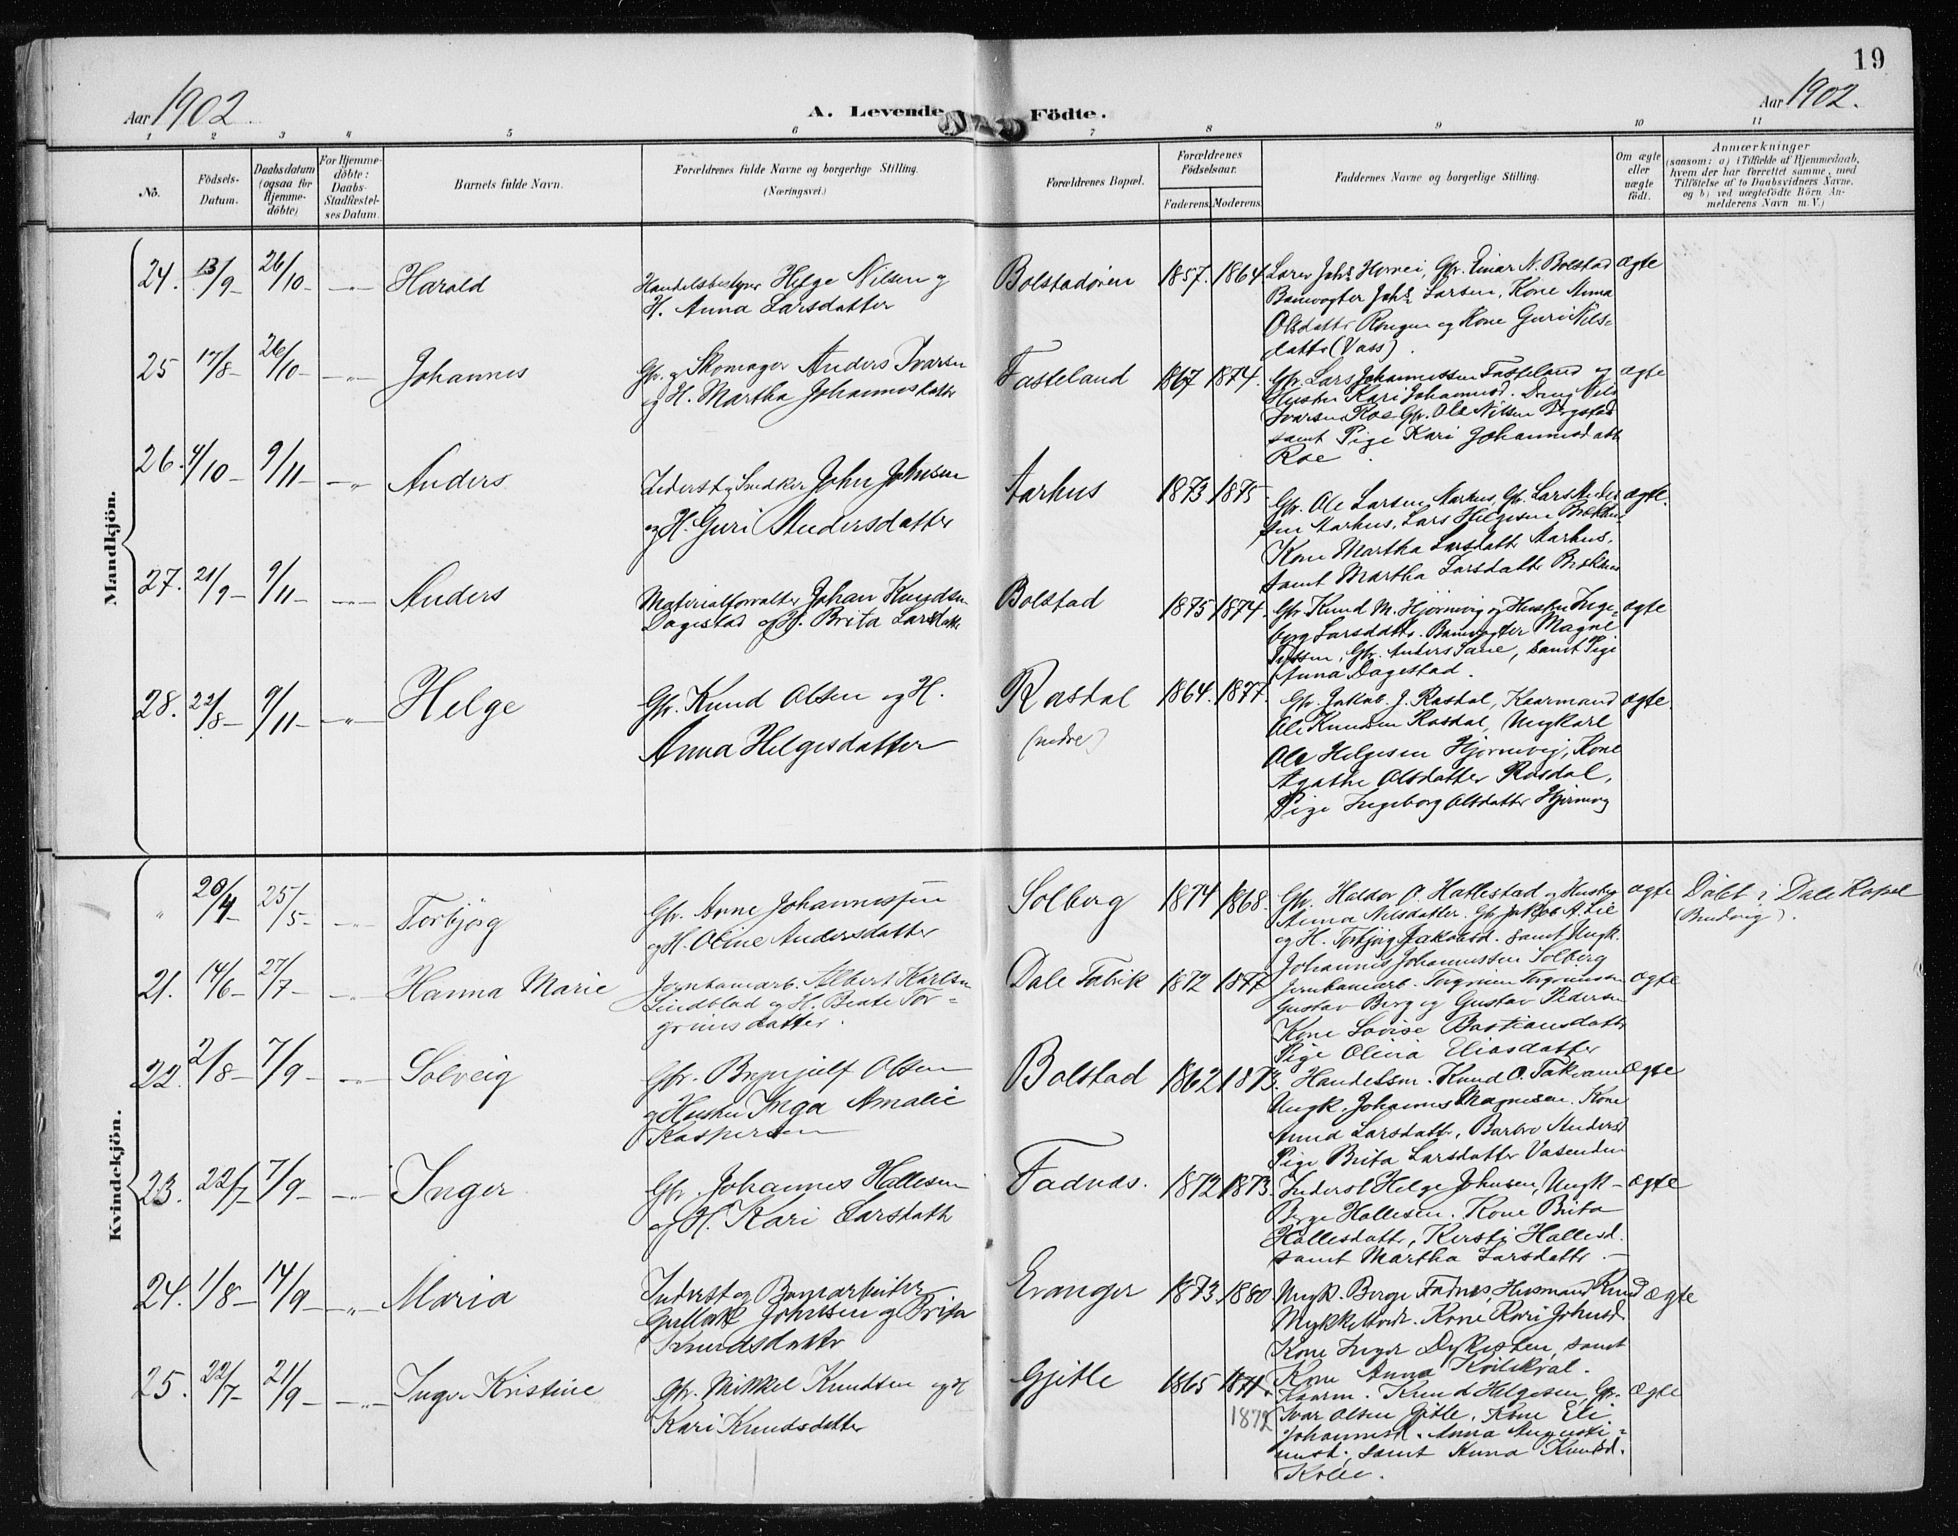 19
Aar 1902.
A. Levende Födte.
Aar 1902.
1 2 3 4 5 6 7 8 9 10 11
No.
Födsels-Datum.
Daabsdatum (ogsaa for Hjemme-döbte)
For Hjemme-döbte: Daabs-Stadfæstel-ses Datum.
Barnets fulde Navn.
Forældrenes fulde Navne og borgerlige Stilling.
(Næringsvei.)
Forældrenes Bopæl.
Forældrenes Födselsaar.
Faderens. Moderens.
Faddernes Navne og borgerlige Stilling.
Om ægte eller uægte födt.
Anmærkninger
(saasom: a) i Tilfælde af Hjemmedaab, hvem der har forrettet samme, med Tilföielse af to Daabsvidners Navne, og b) ved uægtefödte Börn An-melderens Navn m. V.)
Mandkjön.
24. 13/9 26/10 Harald
Handelsbestyrer Helge Nilsen og
H. Anna Larsdatter
Bolstadøren 1857. 1864.
Lærer Johs Horvei, Gbr. Einar N. Bolstad
Banevogter Johs Larsen, Kone Anna
Olsdatter Rongen og Kone Guri Nils-
datter (Vass).
ægte
25 17/8 26/10 Johannes
Gbr. og Skomager Anders Ivarsen
og H. Martha Johannesdatter
Fasteland 1867 1874.
Gbr. Lars Johannessen Fasteland og
Hustru Kari Johannesd. Dreng Nils
Ivarsen Roe Gbr. Ole Nilsen
samt Pige Kari Johannesdatt
Roe.
ægte
26. 4/10 9/11 Anders
Inderst og Snedker John Johnsen
og H. Guri Andersdatter
Aarhus 1873 1875
Gbr. Ole Larsen Aarhus, Gbr. Lars Ander
sen Aarhus, Lars Helgesen
Kone Martha Larsdatter Aarhus,
samt Martha Larsdatter
ægte.
27. 21/9 9/11 Anders
Materialforvalter Johan Knudsen
Dagestad og H. Brita Larsdatter
Bolstad 1875 1874.
Gbr. Knud M. Hjørnevig og Hustru Inge-
borg Larsdatter. Banevogter Magne
Gbr. Anders Sane, samt Pige
Anna Dagestad.
ægte
28. 22/8 9/11 Helge
Gbr. Knud Olsen og H.
Anna Helgesdatter
Rasdal 1864. 1877.
(nedre)
Gbr. Jakob J. Rasdal, Kaarmand
Ole Knudsen Rasdal, Ungkarl
Ole Helgesen Hjørnevig, Kone
Agathe Olsdatter Rasdal,
Pige Ingeborg Olsdatter Hjørnevig
ægte.
Kvindekjön.
" 20/4 25/5 Torbjørg
Gbr. Arne Johannessen
og H. Oline Andersdatter
Solberg 1874 1868.
Gbr. Haldor O. Hatlestad og Hustru
Anna Nilsdatter. Gbr. Jakob A. Lie
og H. Torbjørg Jakobsd. samt Ungk.
Johannes Johannessen Solberg
ægte
Døbt i Dale Kapel
(Bruvig).
21. 14/6 27/7 Hanna Marie
Jernbanearb. Albert Karlsen
Lindblad og H. Beate Tor-
grimsdatter.
Dale Fabrik 1872 1877
Jernbanearb. Torgrim Torgrimsen
Gustav Berg og Gustav Pedersen
Kone Lovise Bastiansdatter
Pige Olivia Eliasdatter
ægte
22. 2/8 7/9 Solveig
Gbr. Brynjulf Olsen
og Hustru Inga Amalie
Kaspersen
Bolstad 1862 1873.
Handelsm. Knud O. Takvam
Ungk. Johannes Magnesen. Kone
Anna Larsdatter, Barbro Andersd
Pige Brita Larsdatter Vasenden
ægte
23. 22/7 7/9 Inger
Gbr. Johannes Hallesen
og H. Kari Larsdatter
Fadnæs. 1872 1873.
Inderst Helge Johnsen, Ungk
Berge Hallesen. Kone Brita
Hallesdatter, Kersti Hallesd.
samt Martha Larsdatter.
ægte
24. 1/8 14/9 Maria
Inderst og Banearbeider
Johnsen og Brita
Knudsdatter
Evanger 1873. 1880
Ungk. Berge Fadnes, Husmand Knud
Mykkeltvedt. Kone Kari Johnsd
Kone Inger Dykesten, samt
Kone Anna
ægte
25. 22/7 21/9 Inger Kristine
Gbr. Mikkel Knudsen og H
Kari Knudsdatter
Gjitle 1865 1871.
1872
Kaarm. Knud Helgesen, Gbr.
Ivar Olsen Gjitle, Kone Eli
Johannesd. Anna Augusti-
nusd, samt Anna Knudsd.
ægte